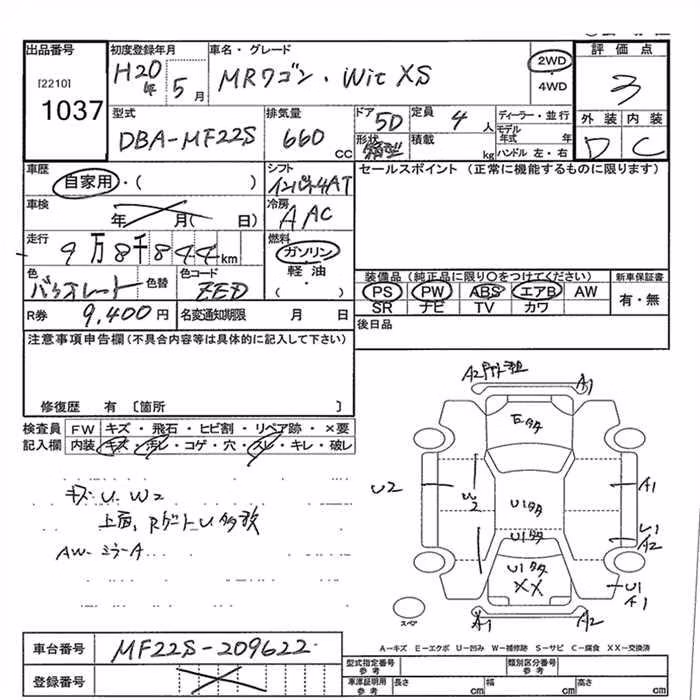 出品番号 初度登録年月 車名・グレード 評価点
[2210] H20年 5月 MRワゴン・Wit XS 2WD・4WD 3
1037
型式 排気量 ドア 定員 ディーラー・並行 外装 内装
DBA-MF22S 660cc 5D 4人 モデル年式 年 D C
形状 箱型 積載 kg ハンドル 左・右
車歴 シフト セールスポイント(正常に機能するものに限ります)
自家用・( ) インパネ4AT
車検 冷房
年 月( 日) AAC
走行 燃料
9万8千844km ガソリン
軽油
・( )
色 色替 色コード 装備品(純正品に限り○をつけてください) 新車保証書
ZED PS PW ABS エアB AW 有・無
SR ナビ TV カワ
R券 9,400円 名変通知期限 月 日 後日品
注意事項申告欄(不具合内容等は具体的に記入して下さい)
修復歴 有〔箇所 〕
検査員 FW キズ・飛石・ヒビ割・リペア跡・×要
記入欄 内装 キズ・汚レ・コゲ・穴・スレ・キレ・破レ
キズ・U、W2
上面、Rゲート U多数
AW-ミラーA
A2 A1
E多
U2 W2 U1多 A1
U1多 L1 A2
U1多 XX U1 A1
スペア A1 A2
A-キズ E-エクボ U-凹み W-補修跡 S-サビ C-腐食 XX-交換済
車台番号 MF22S-209622
登録番号
型式指定番号 参考 類別区分番号 参考
車庫証明用 参考 長さ cm 幅 cm 高さ cm